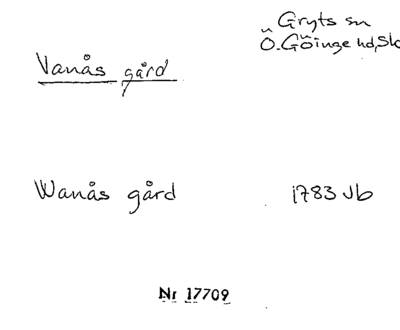 Gryts sn
Ö. Göinge hd, Sk
Vanås gård
Wanås gård 1783 Jb
Nr 17709